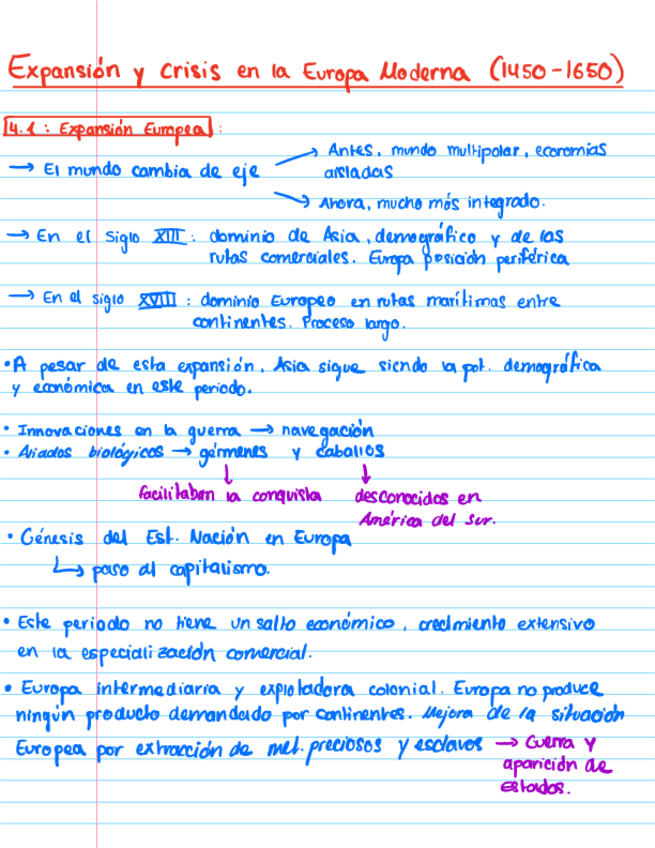 Expansión y crisis en la Europa Moderna (1450-1650)
4.1: Expansión Europea:
→ El mundo cambia de eje → Antes, mundo multipolar, economías
aisladas
→ Ahora, mucho más integrado.
→ En el siglo XIII: dominio de Asia, demográfico y de las
rutas comerciales. Europa posición periférica
→ En el siglo XVIII: dominio Europeo en rutas marítimas entre
continentes. Proceso largo.
• A pesar de esta expansión, Asia sigue siendo la pot. demográfica
y económica en este periodo.
• Innovaciones en la guerra → navegación
• Aliados biológicos → gérmenes y caballos
↓ ↓
facilitaban la conquista desconocidos en
América del Sur.
• Génesis del Est. Nación en Europa
↳ paso al capitalismo.
• Este periodo no tiene un salto económico, crecimiento extensivo
en la especialización comercial.
• Europa intermediaria y explotadora colonial. Europa no produce
ningún producto demandado por continentes. Mejora de la situación
Europea por extracción de met. preciosos y esclavos → Guerra y
aparición de
estados.